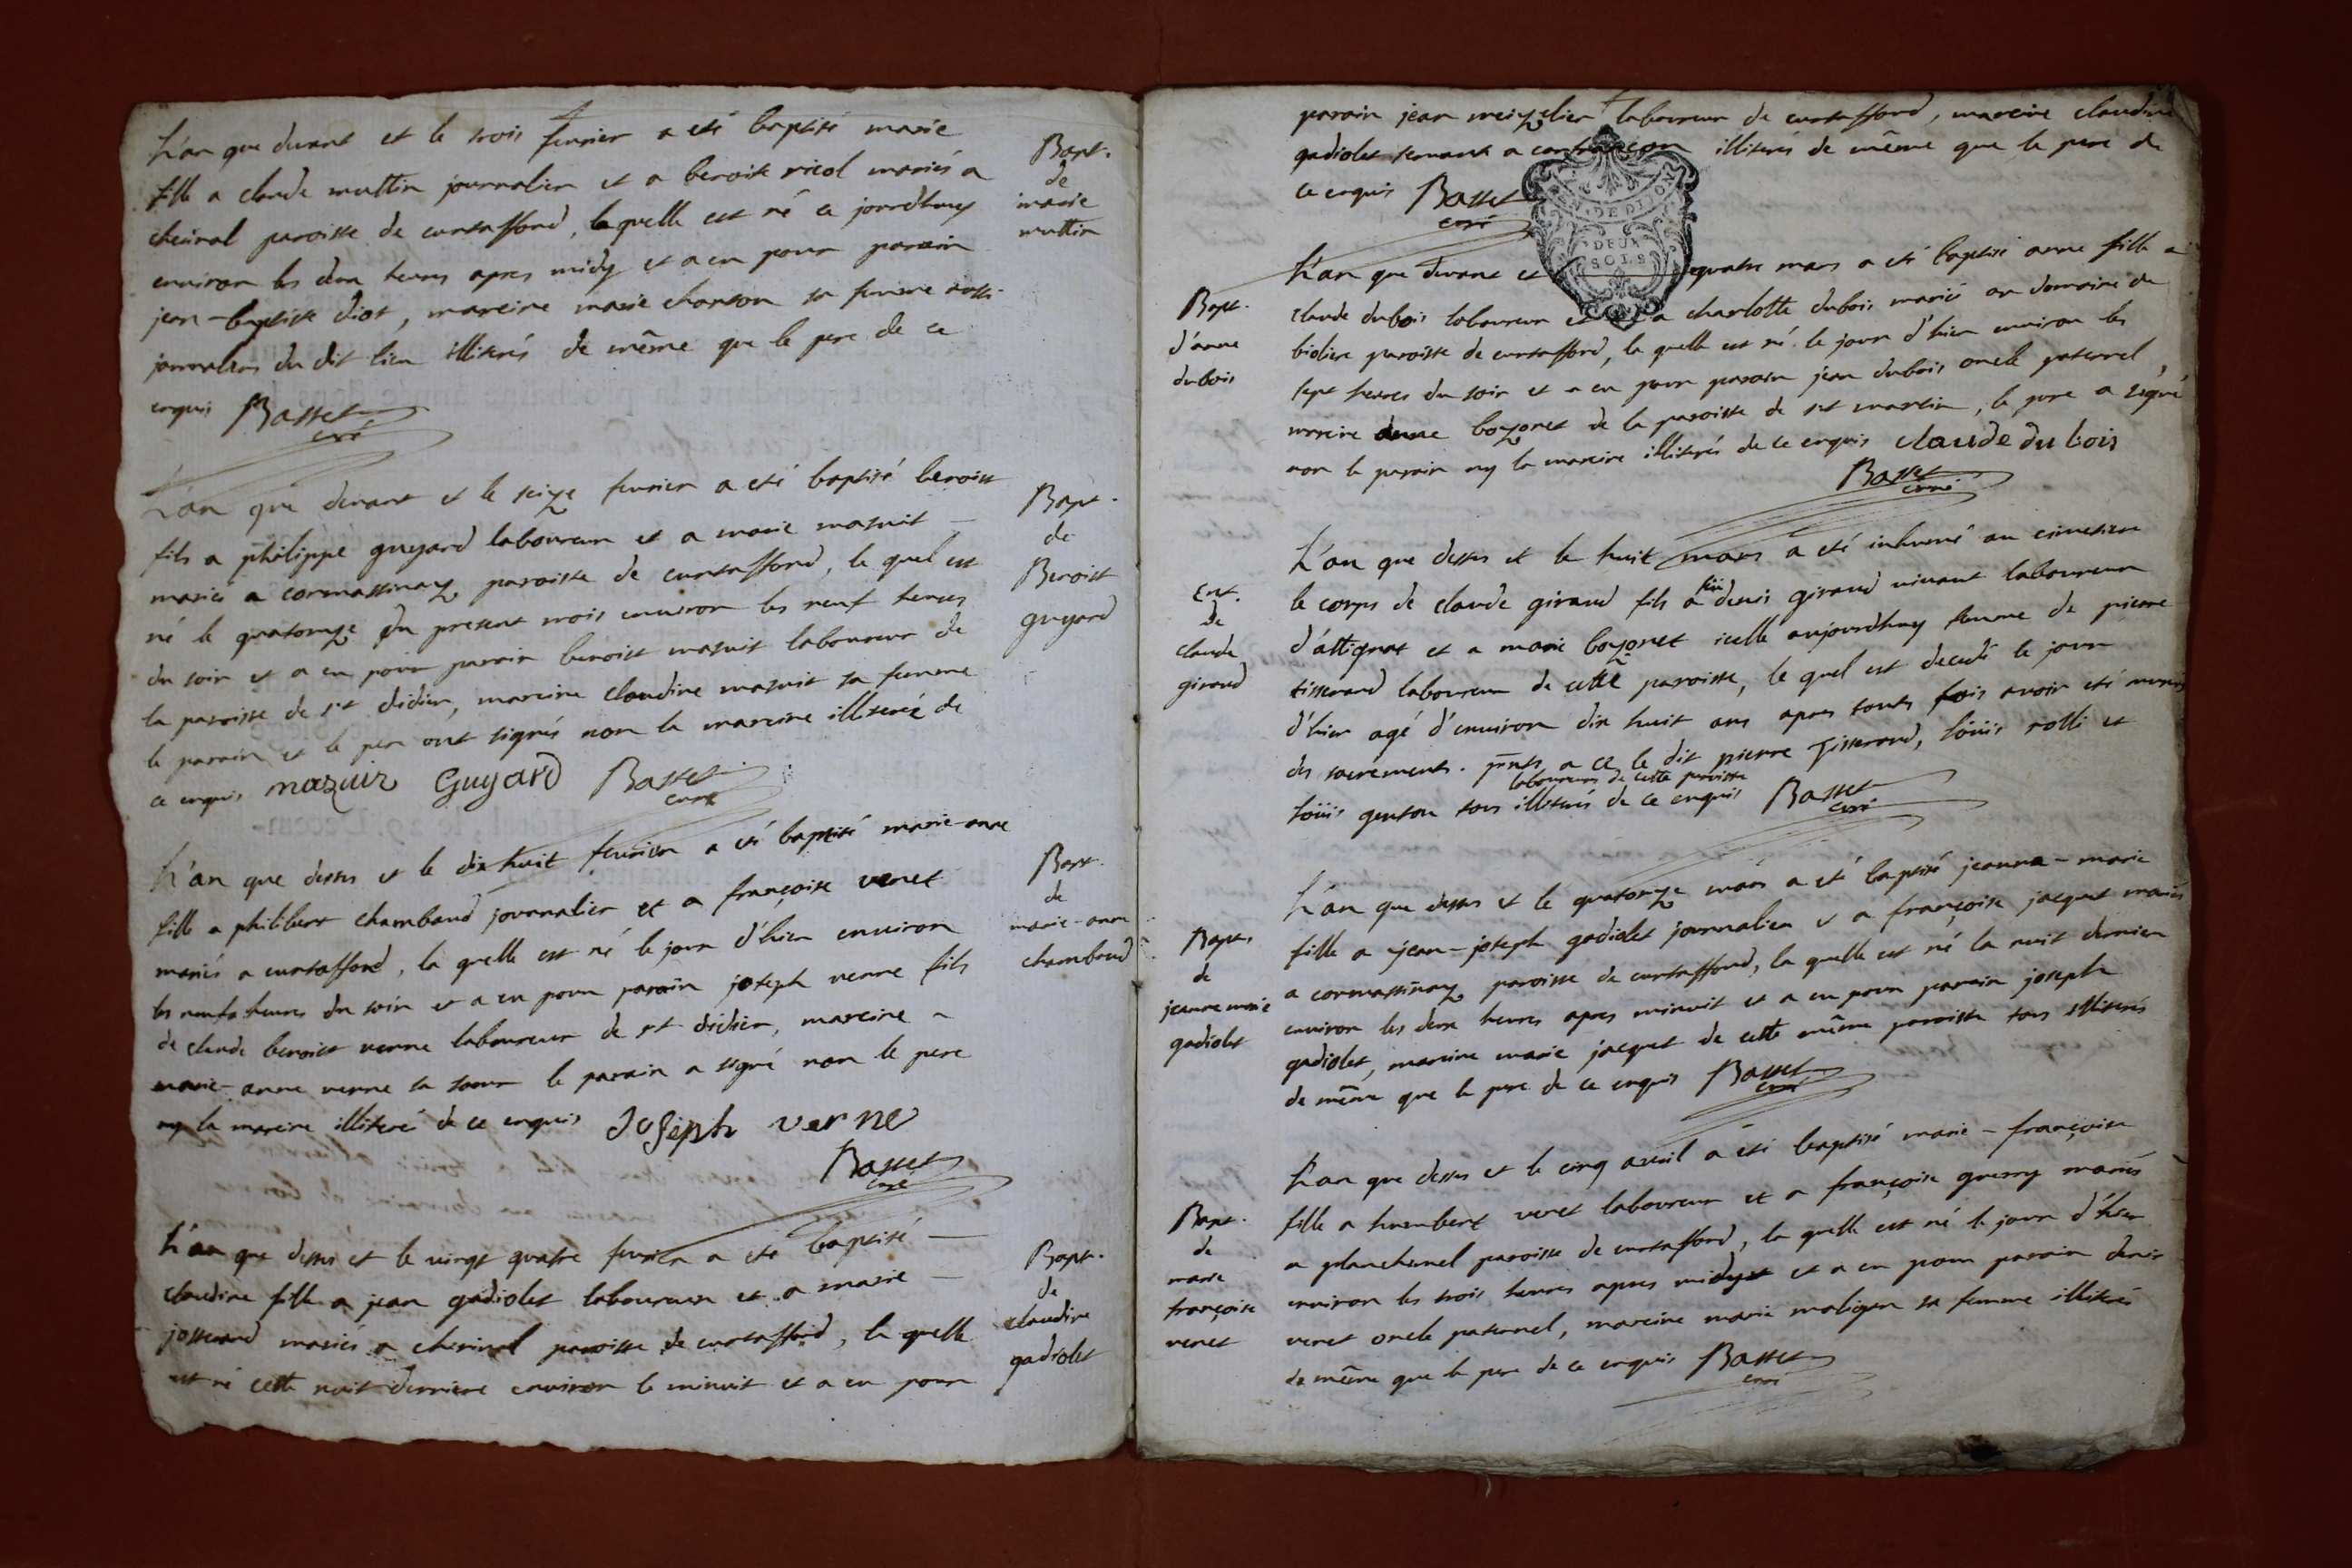 L'an que devant et le trois fevrier a eté baptisé marie
fille a claude muttin journalier et a benoite nicol mariés a
cheiral paroisse de curtaffond, la quelle est né ce jourdhuy
environ les deux heures apres midy et a eu pour parain
jean-baptiste diot, mareine marie chanson sa femme
journaliers du dit lieu illiterés de même que le pere de ce
enquis Basset
curé
Bapt.
de
marie
muttin
L'an que devant et le seize fevrier a eté baptisé benoist
fils a philippe guyard laboureur et a marie mazuit
mariés a cormassinaz paroisse de curtaffond, le quel est
né le quatorze du present mois environ les neuf heures
du soir et a eu pour parain benoist mazuit laboureur de
la paroisse de st didier, mareine claudine mazuit sa femme
le parain et le pere ont signés non la mareine illiterée de
ce enquis mazuir Guyard Basset
curé
Bapt.
de
Benoist
guyard
L'an que dessus et le dix huit fevrier a eté baptisé marie-anne
fille a philibert chambaud journalier et a françoise venet
mariés a curtaffond, la quelle est né le jour d'hier environ
les neufs heures du soir et a eu pour parain joseph verne fils
de claude benoist verne laboureur de st didier, mareine
marie-anne verne sa soeur le parain a signé non le pere
ny la mareine illiteré de ce enquis Joseph verne
Basset
curé
Bapt.
de
marie-anne
chambaud
L'an que dessus et le vingt quatre fevrier a eté baptisé
claudine fille a jean gadiolet laboureur et a marie
josserand mariés a cheiral paroisse de curtaffond, la quelle
est né cette nuit derniere environ le minuit et a eu pour
Bapt.
de
claudine
gadiolet
parain jean meizelier laboureur de curtaffond, mareine claudine
gadiolet servante a confrançon illiterés de même que le pere de
ce enquis Basset
curé
GEN. DE DIJON
DEUX
SOLS
L'an que devant et quatre mars a eté baptisé anne fille a
claude dubois laboureur et a charlotte dubois mariés au domaine de
biolieu paroisse de curtaffond, la quelle est né le jour d'hier environ les
sept heures du soir et a eu pour parain jean dubois oncle paternel
mareine anne bozonet de la paroisse de st martin, le pere a signé
non le parain ny la mareine illiterés de ce enquis claude du bois
Basset
curé
Bapt.
d'anne
dubois
L'an que dessus et le huit mars a eté inhumé au cimetiere
le corps de claude giraud fils a feu denis giraud vivant laboureur
d'attignat et a marie bozonet icelle aujourdhuy femme de pierre
tisserand laboureur de cette paroisse, le quel est decedé le jour
d'hier agé d'environ dix huit ans apres toute fois avoir eté munis
des sacrements. pnts a ce le dit pierre Tisserand, loüis rolli et
laboureurs de cette paroisse
loüis genton tous illiterés de ce enquis Basset
curé
Ent.
de
claude
giraud
L'an que dessus et le quatorze mars a eté baptisé jeanne-marie
fille a jean-joseph gadiolet journalier et a françoise jacquet mariés
a cormassinaz paroisse de curtaffond, la quelle est né la nuit dernier
environ les deux heures apres minuit et a eu pour parain joseph
gadiolet, mareine marie jacquet de cette même paroisse tous illiterés
de même que le pere de ce enquis Basset
curé
Bapt.
de
jeanne marie
gadiolet
L'an que dessus et le cinq avril a eté baptisé marie-françoise
fille a humbert venet laboureur et a françoise guerry mariés
a planchenel paroisse de curtaffond, la quelle est né le jour d'hier
environ les trois heures apres midy et a eu pour parain denis
venet oncle paternel, mareine marie maligon sa femme illiterés
de même que le pere de ce enquis Basset
curé
Bapt.
de
marie
françoise
venet